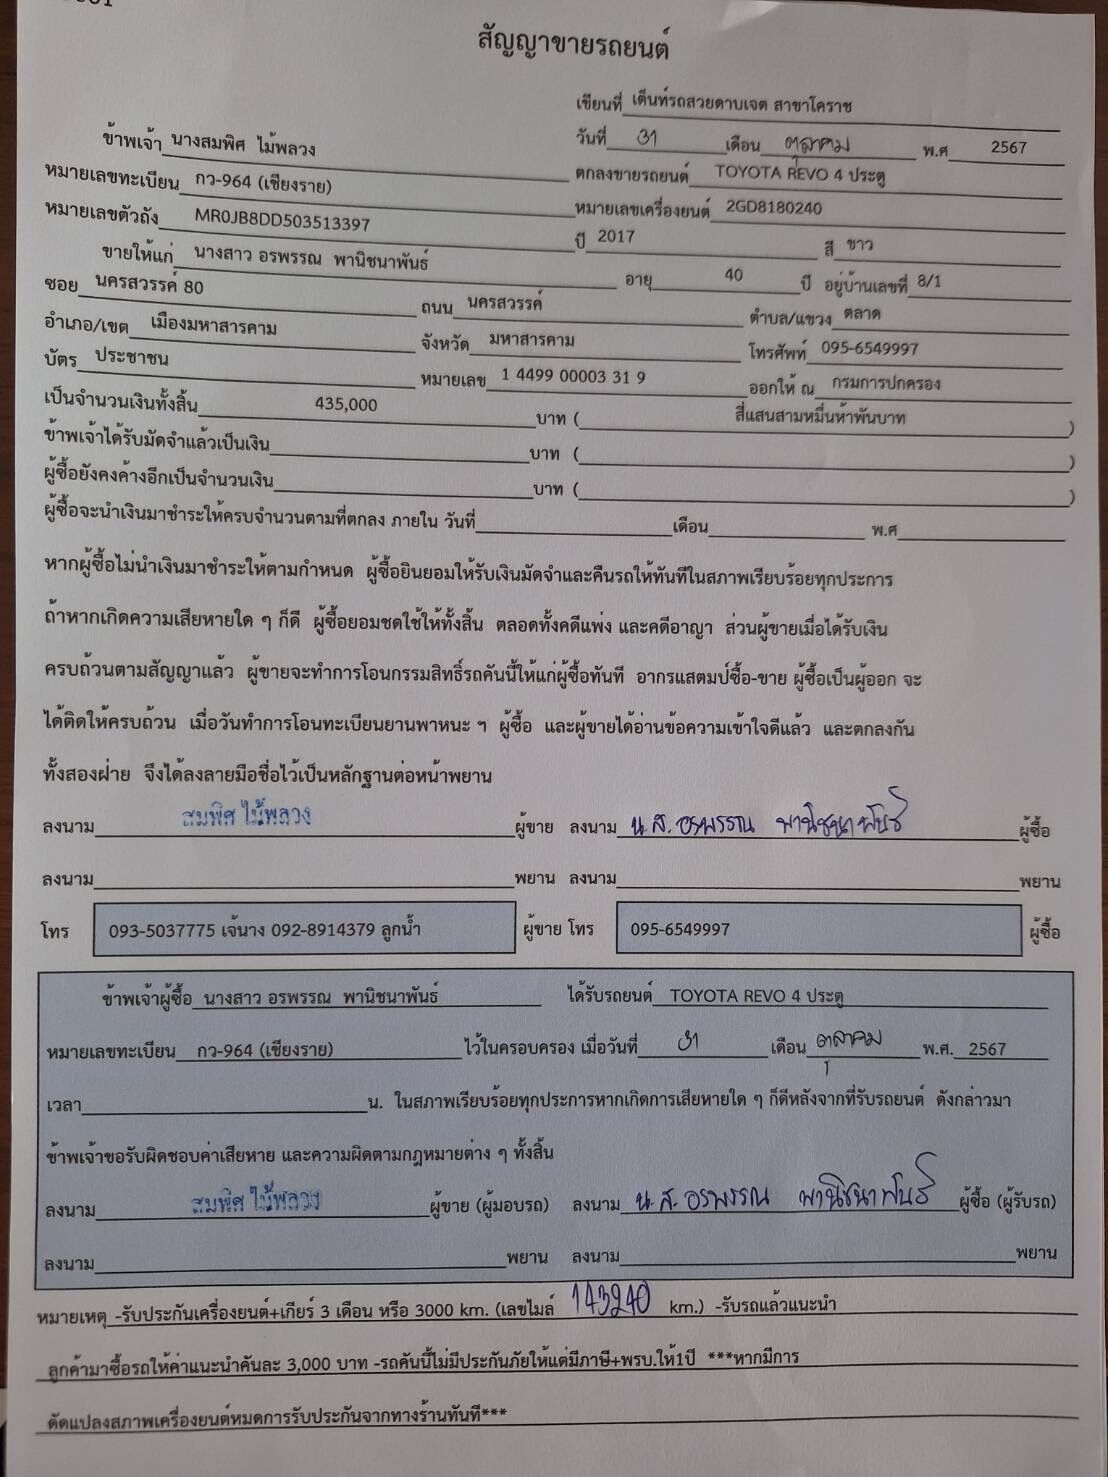 สัญญาขายรถยนต์
เขียนที่ เต็นท์รถสวยดาบเจต สาขาโคราช
วันที่ 31 เดือน ตุลาคม พ.ศ 2567
ข้าพเจ้า นางสมพิศ ไม้พลวง ตกลงขายรถยนต์ TOYOTA REVO 4 ประตู
หมายเลขทะเบียน กว-964 (เชียงราย) หมายเลขเครื่องยนต์ 2GD8180240
หมายเลขตัวถัง MR0JB8DD503513397 ปี 2017 สี ขาว
ขายให้แก่ นางสาว อรพรรณ พานิชนาพันธ์ อายุ 40 ปี อยู่บ้านเลขที่ 8/1
ซอย นครสวรรค์ 80 ถนน นครสวรรค์ ตำบล/แขวง ตลาด
อำเภอ/เขต เมืองมหาสารคาม จังหวัด มหาสารคาม โทรศัพท์ 095-6549997
บัตร ประชาชน หมายเลข 1 4499 00003 31 9 ออกให้ ณ กรมการปกครอง
เป็นจำนวนเงินทั้งสิ้น 435,000 บาท ( สี่แสนสามหมื่นห้าพันบาท )
ข้าพเจ้าได้รับมัดจำแล้วเป็นเงิน บาท ( )
ผู้ซื้อยังคงค้างอีกเป็นจำนวนเงิน บาท ( )
ผู้ซื้อจะนำเงินมาชำระให้ครบจำนวนตามที่ตกลง ภายใน วันที่ เดือน พ.ศ
หากผู้ซื้อไม่นำเงินมาชำระให้ตามกำหนด ผู้ซื้อยินยอมให้รับเงินมัดจำและคืนรถให้ทันทีในสภาพเรียบร้อยทุกประการ
ถ้าหากเกิดความเสียหายใด ๆ ก็ดี ผู้ซื้อยอมชดใช้ให้ทั้งสิ้น ตลอดทั้งคดีแพ่ง และคดีอาญา ส่วนผู้ขายเมื่อได้รับเงิน
ครบถ้วนตามสัญญาแล้ว ผู้ขายจะทำการโอนกรรมสิทธิ์รถคันนี้ให้แก่ผู้ซื้อทันที อากรแสตมป์ซื้อ-ขาย ผู้ซื้อเป็นผู้ออก จะ
ได้ติดให้ครบถ้วน เมื่อวันทำการโอนทะเบียนยานพาหนะ ฯ ผู้ซื้อ และผู้ขายได้อ่านข้อความเข้าใจดีแล้ว และตกลงกัน
ทั้งสองฝ่าย จึงได้ลงลายมือชื่อไว้เป็นหลักฐานต่อหน้าพยาน
ลงนาม สมพิศ ไม้พลวง ผู้ขาย ลงนาม น.ส. อรพรรณ พานิชนาพันธ์ ผู้ซื้อ
ลงนาม พยาน ลงนาม พยาน
โทร 093-5037775 เจ้นาง 092-8914379 ลูกน้ำ ผู้ขาย โทร 095-6549997 ผู้ซื้อ
ข้าพเจ้าผู้ซื้อ นางสาว อรพรรณ พานิชนาพันธ์ ได้รับรถยนต์ TOYOTA REVO 4 ประตู
หมายเลขทะเบียน กว-964 (เชียงราย) ไว้ในครอบครอง เมื่อวันที่ 31 เดือน ตุลาคม พ.ศ. 2567
เวลา น. ในสภาพเรียบร้อยทุกประการหากเกิดการเสียหายใด ๆ ก็ดีหลังจากที่รับรถยนต์ ดังกล่าวมา
ข้าพเจ้าขอรับผิดชอบค่าเสียหาย และความผิดตามกฎหมายต่าง ๆ ทั้งสิ้น
ลงนาม สมพิศ ไม้พลวง ผู้ขาย (ผู้มอบรถ) ลงนาม น.ส. อรพรรณ พานิชนาพันธ์ ผู้ซื้อ (ผู้รับรถ)
ลงนาม พยาน ลงนาม พยาน
หมายเหตุ -รับประกันเครื่องยนต์+เกียร์ 3 เดือน หรือ 3000 km. (เลขไมล์ 143240 km.) -รับรถแล้วแนะนำ
ลูกค้ามาซื้อรถให้ค่าแนะนำคันละ 3,000 บาท -รถคันนี้ไม่มีประกันภัยให้แต่มีภาษี+พรบ.ให้1ปี ***หากมีการ
ดัดแปลงสภาพเครื่องยนต์หมดการรับประกันจากทางร้านทันที***